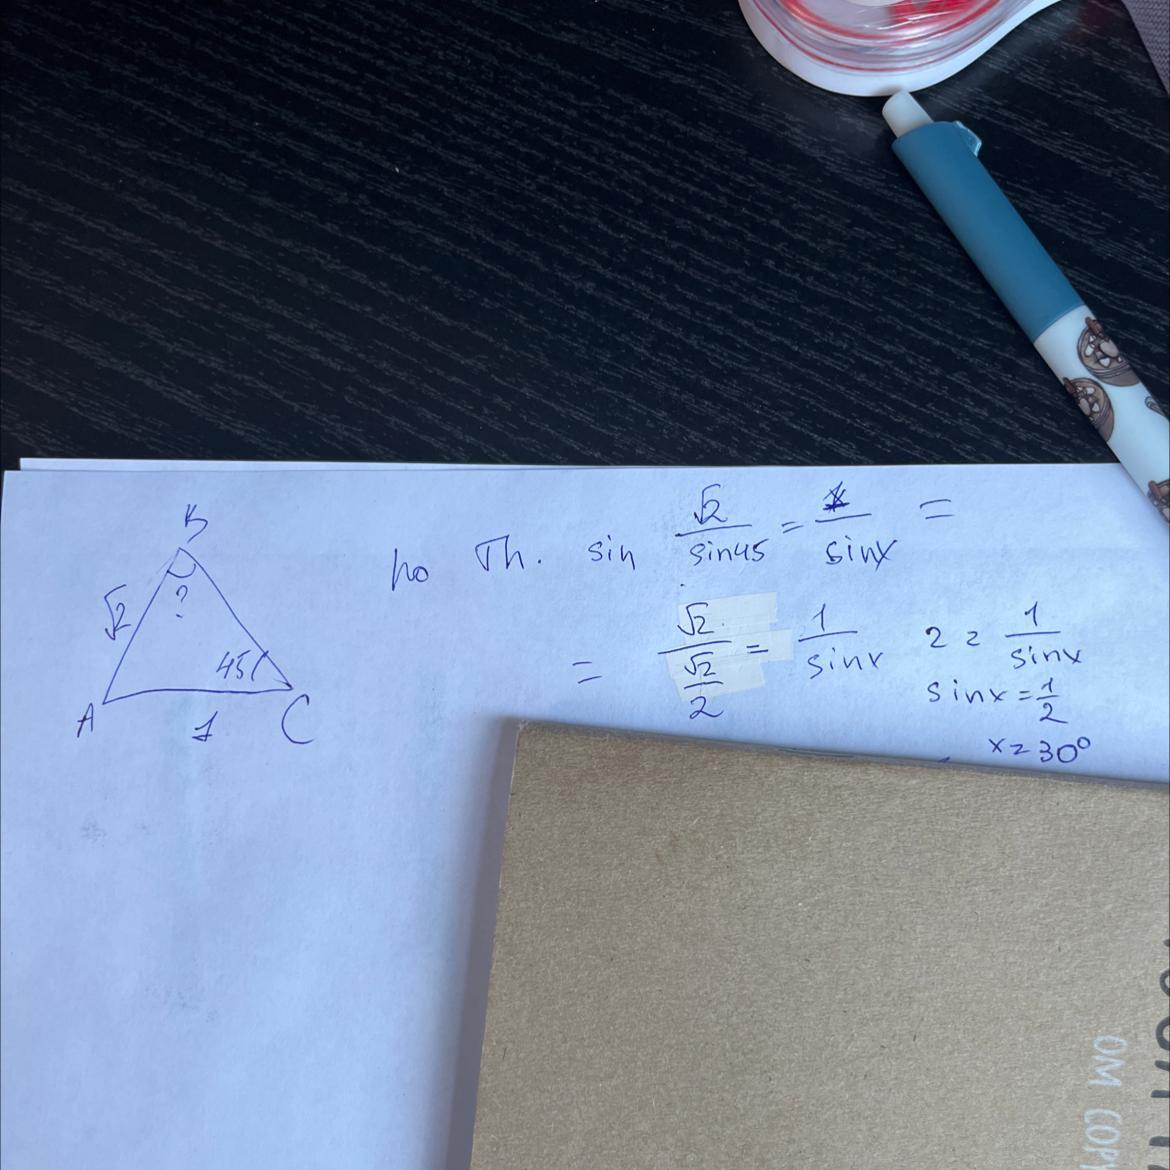 B
√2
?
45
A
1
C
по Th. sin √2/sin45 = 1/sinx =
= √2/(√2/2) = 1/sinx
2 = 1/sinx
sinx = 1/2
x = 30°
OM (OP